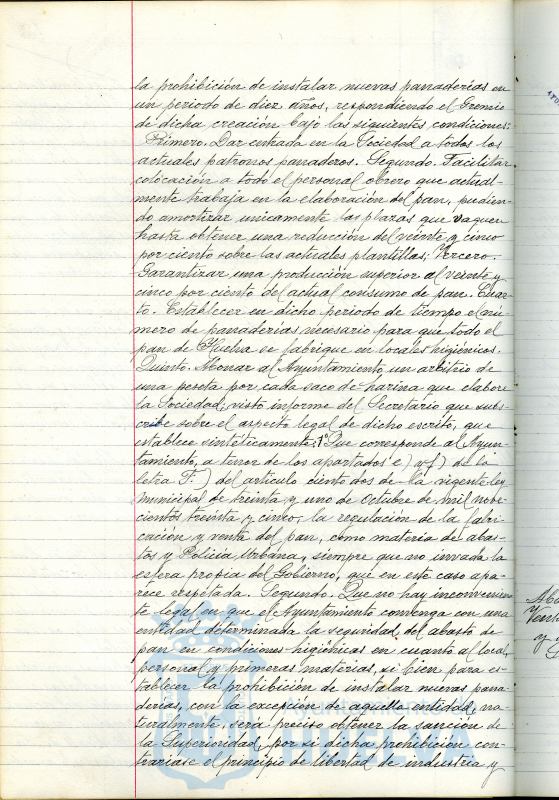 la prohibición de instalar nuevas panaderías en
un periodo de diez años, respondiendo el Gremio
de dicha creación bajo las siguientes condiciones:
Primero. Dar entrada en la Sociedad a todos los
actuales patronos panaderos. Segundo. Facilitar
colocación a todo el personal obrero que actual-
mente trabaja en la elaboración del pan, pudien-
do amortizar unicamente las plazas que vaquen
hasta obtener una reducción del veinte y cinco
por ciento sobre las actuales plantillas; Tercero.
Garantizar una producción superior al veinte y
cinco por ciento del actual consumo de pan. Cuar-
to. Establecer en dicho periodo de tiempo el nú-
mero de panaderías necesario para que todo el
pan de Huelva se fabrique en locales higiénicos.
Quinto. Abonar al Ayuntamiento un arbitrio de
una peseta por cada saco de harina que elabore
la Sociedad; visto informe del Secretario que sus-
cribe sobre el aspecto legal de dicho escrito, que
establece sintéticamente: 1º Que corresponde al Ayun-
tamiento, a tenor de los apartados e) y f) de la
letra F.) del artículo ciento dos de la vigente ley
municipal de treinta y uno de Octubre de mil nove-
cientos treinta y cinco, la regulación de la fabri-
cación y venta del pan, como materia de abas-
tos y Policía Urbana, siempre que no invada la
esfera propia del Gobierno, que en este caso apa-
rece respetada. Segundo. Que no hay inconvenien-
te legal en que el Ayuntamiento convenga con una
entidad determinada la seguridad del abasto de
pan en condiciones higiénicas en cuanto al local,
personal y primeras materias, si bien para es-
tablecer la prohibición de instalar nuevas pana-
derías, con la excepción de aquella entidad, na-
turalmente, será preciso obtener la sanción de
la Superioridad, por si dicha prohibición con-
trariase el principio de libertad de industria y